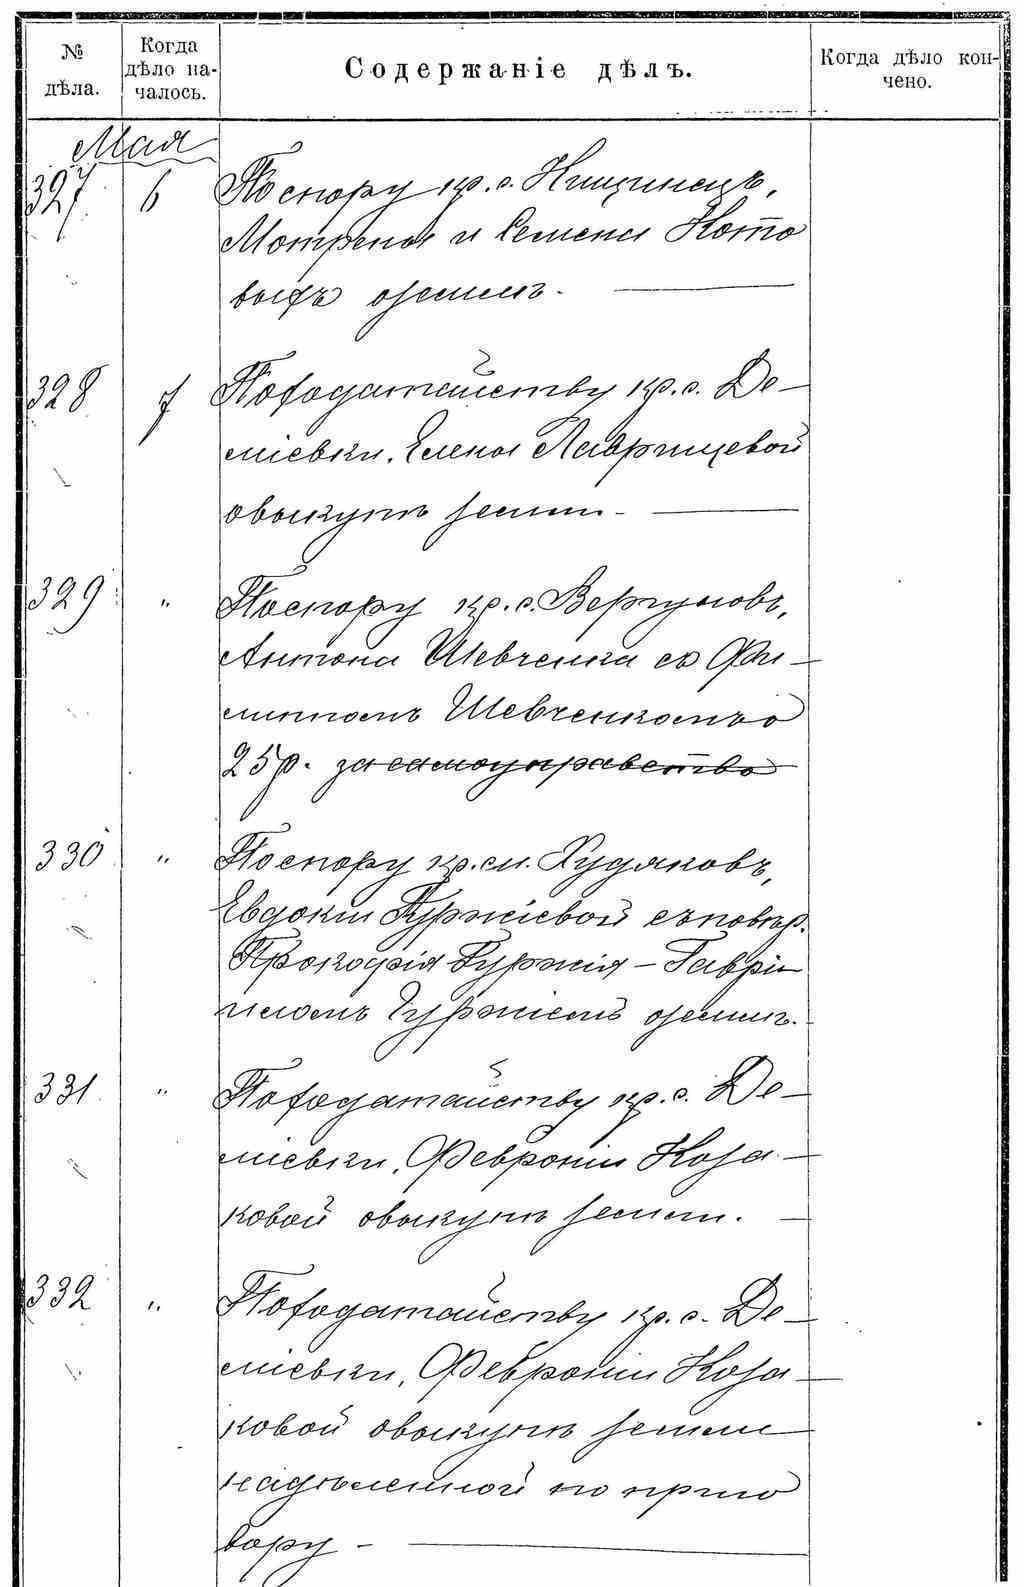 № дѣла.
Когда дѣло на-
чалось.
Содержаніе дѣлъ.
Когда дѣло кон-
чено.
Мая
327 6 По спору кр. с. Нищинецъ,
Мотрены и Семена Кото
выхъ о землѣ.
328 7 По ходатайству кр. с. Де-
міевки, Елены Лаврищевой
о выкупѣ земли.
329 " По спору кр. с. Вергуновъ,
Антона Шевченка съ Фи-
липпомъ Шевченкомъ о
25 р. за самоуправство
330 " По спору кр. м. Худяковъ,
Евдокіи Гуржіевой съ повѣр.
Прокофія Гуржія - Гаврі-
иломъ Гуржіемъ о землѣ.
331 " По ходатайству кр. с. Де-
міевки, Февроніи Коза-
ковой о выкупѣ земли.
332 " По ходатайству кр. с. Де-
міевки, Февроніи Коза-
ковой о выкупѣ земли
надѣленной по приго
вору -